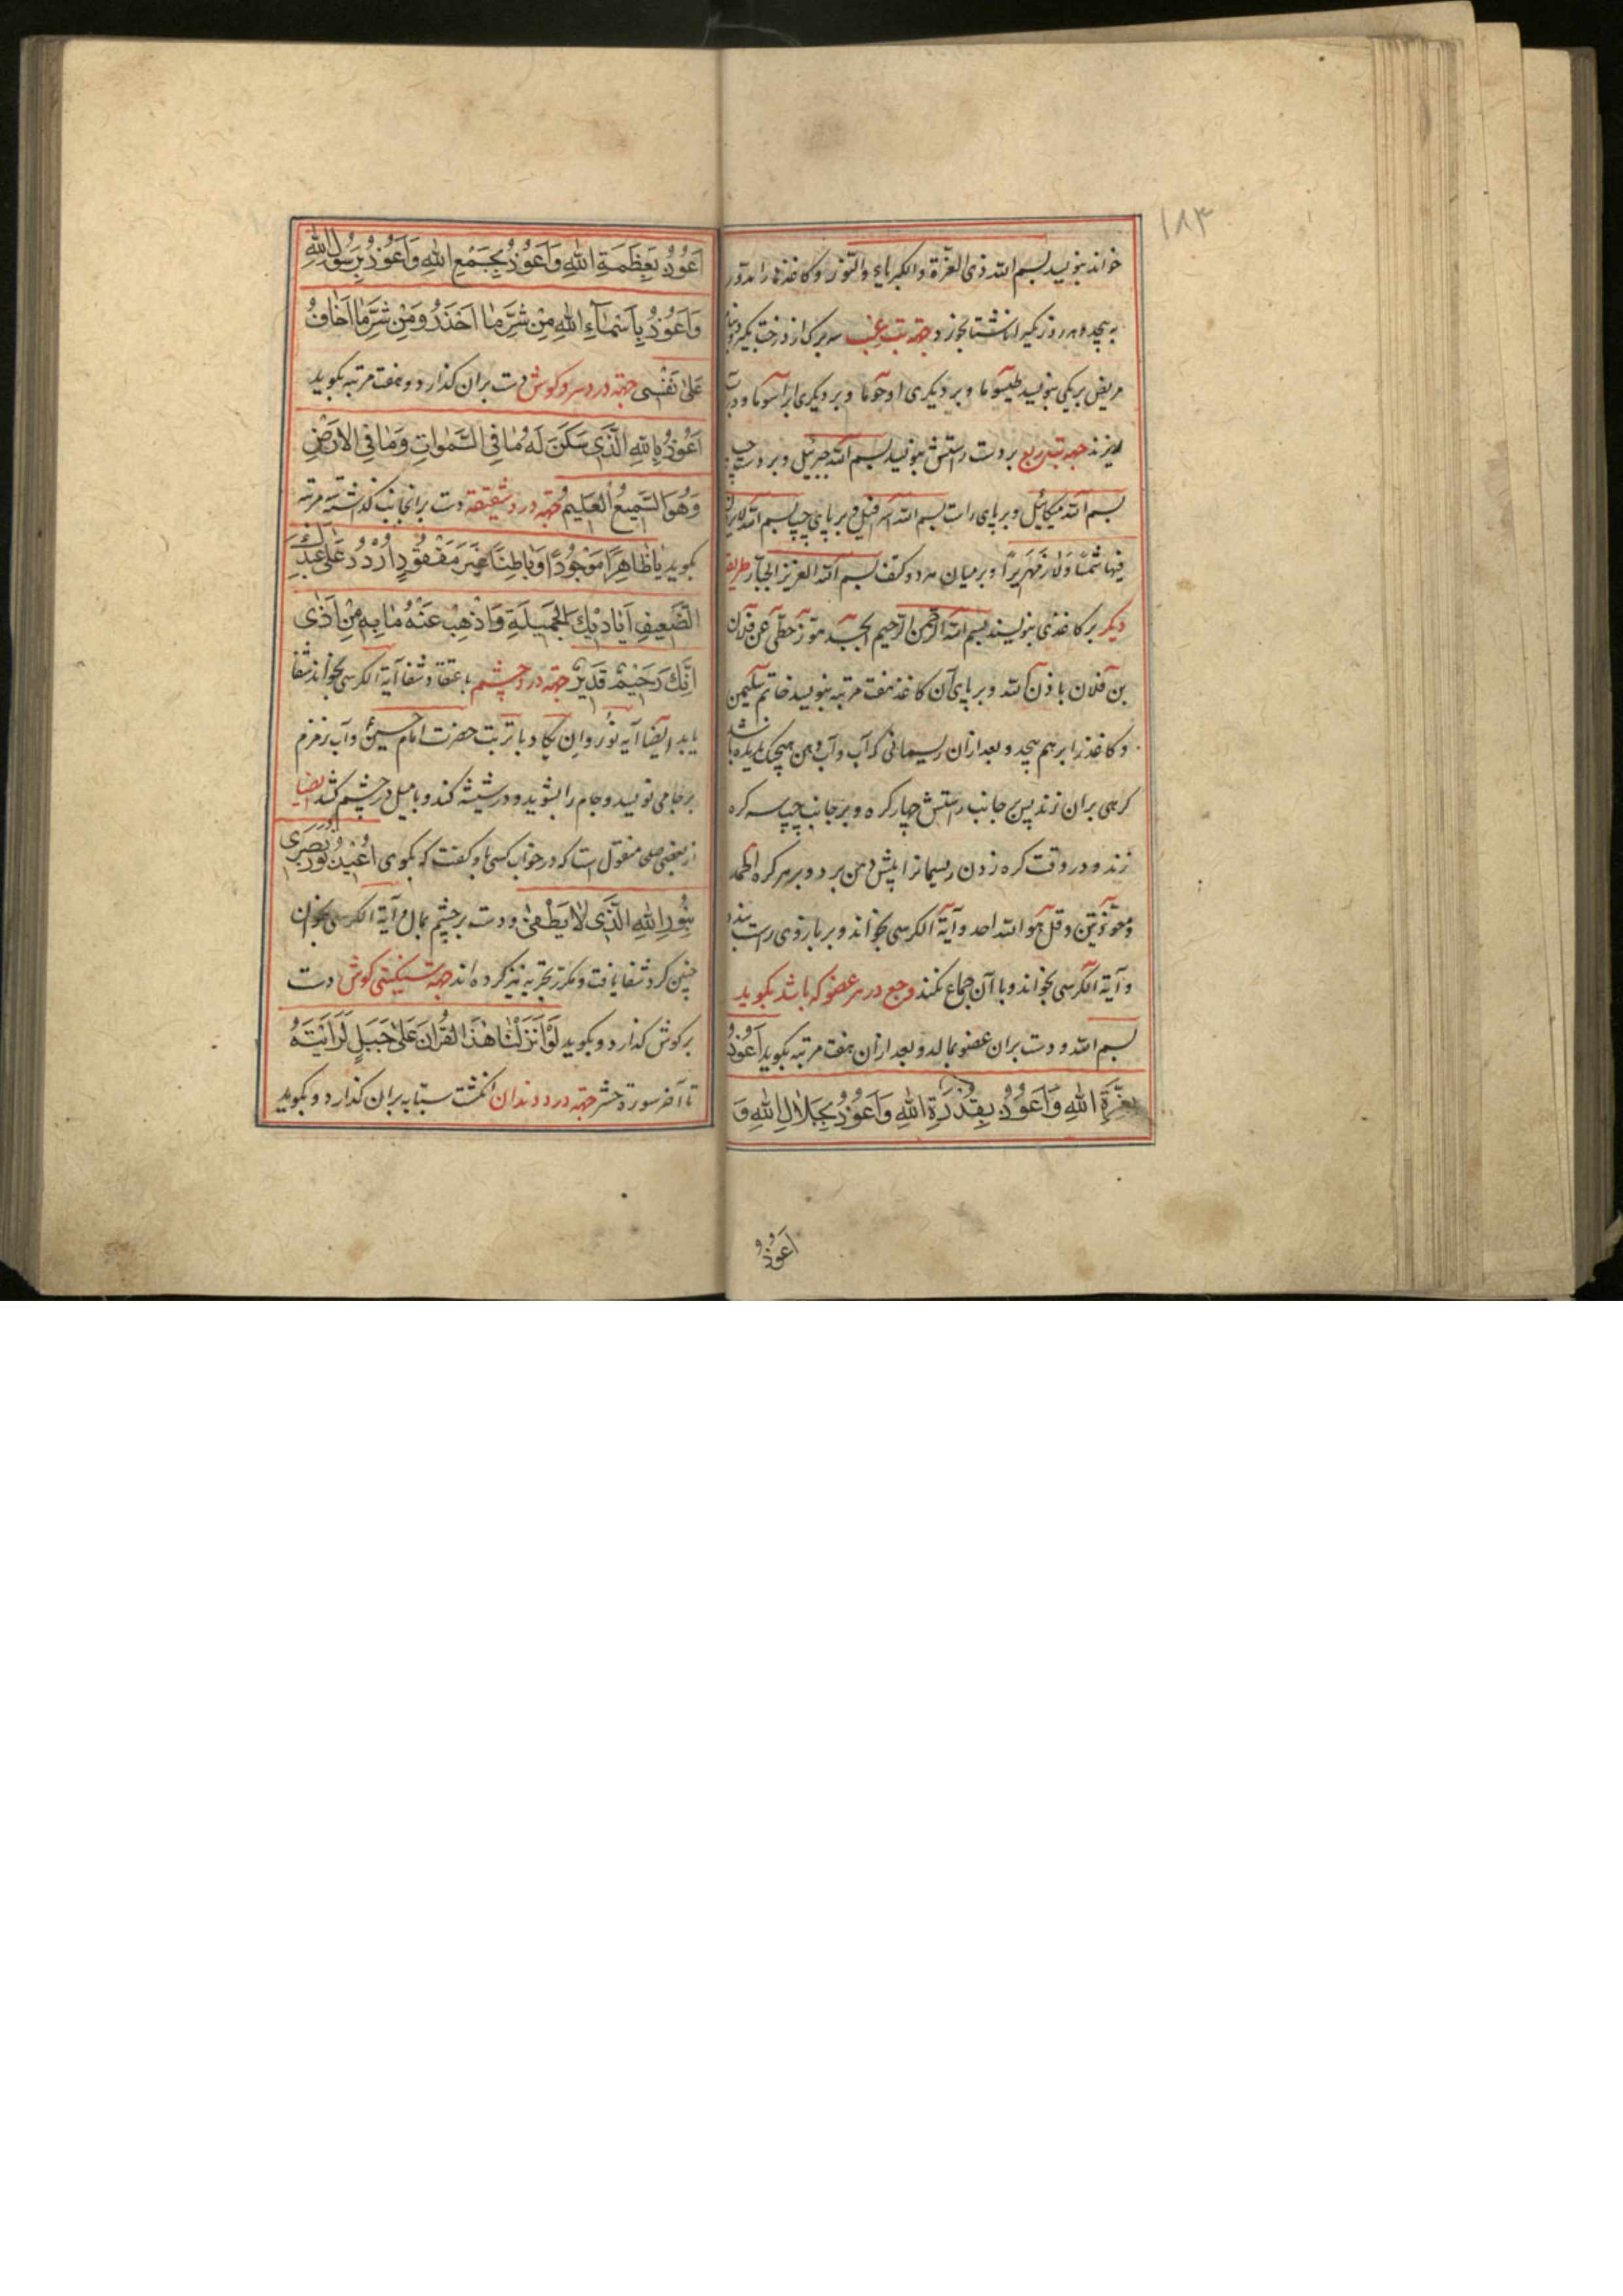 ۱۸۳
خواند بنویسد بسم الله ذی العزة والکبریاء والنور و کاغذها را مدور
به پیچد و هر روز یکی را ناشتا بخورد جهة تب غب سه برک از درخت بگیرد
مریض بر یکی بنویسد طیسوما و بر دیکری اوحوما و بر دیکری ابراسوما و در آب
ریزند جهة تب ربع بر دست راستش بنویسد بسم الله جبرئیل و بر دست چپ
بسم الله میکائیل و بر پای راست بسم الله اسرافیل و بر پای چپ بسم الله لا یرون
فیها شمسا ولا زمهریرا و بر میان هر دو کتف بسم الله العزیز الجبار طریق
دیکر بر کاغذی بنویسند بسم الله الرحمن الرحیم عن فلان
بن فلان باذن الله و بر پای آن کاغذ هفت مرتبه بنویسد خاتم سلیمن
و کاغذ را برهم پیچد و بعد از آن ریسمانی که آب و آب دهن هیچیک باو نرسیده باشد
کرهی بر آن زند پس بر جانب راستش چهار کره و بر جانب چپ سه کره
زند و در وقت کره زدن ریسمانرا پیش دهن برد و بر هر کره الحمد
و معوذتین و قل هو الله احد و آیة الکرسی بخواند و بر بازوی راست بندد
و آیة الکرسی بخواند و با آن جماع نکند وجع در هر عضو که باشد بکوید
بسم الله و دست بران عضو بمالد و بعد از آن هفت مرتبه بکوید اَعُوذُ
بِعِزَّةِ اللهِ وَاَعُوذُ بِقُدْرَةِ اللهِ وَاَعُوذُ بِجَلالِ اللهِ وَ
اَعُوذُ
اَعُوذُ بِعَظَمَةِ اللهِ وَاَعُوذُ بِجَمْعِ اللهِ وَاَعُوذُ بِرَسُولِ اللهِ
وَاَعُوذُ بِاَسْمٰاءِ اللهِ مِنْ شَرِّ مٰا اَحْذَرُ وَمِنْ شَرِّ مٰا اَخٰافُ
عَلىٰ نَفْسی جهة درد سر و کوش دست بران کذارد و هفت مرتبه بکوید
اَعُوذُ بِاللهِ الَّذی سَكَنَ لَهُ مٰا فِی السَّمٰوٰاتِ وَمٰا فِی الاَرْضِ
وَهُوَ السَّمیعُ الْعَلیمُ جهة درد شقیقه دست بر انجانب کذاشته سه مرتبه
بکوید یٰا ظٰاهِراً مَوْجُوداً وَیٰا بٰاطِناً غَیْرَ مَفْقُودٍ اُرْدُدْ عَلىٰ عَبْدِكَ
الضَّعیفِ اَیٰادیكَ الجَمیلَةِ وَاَذْهِبْ عَنْهُ مٰا بِهِ مِنْ اَذىٰ
اِنَّكَ رَحیمٌ قَدیرٌ جهة درد چشم باعتقاد شفا آیة الکرسی بخواند شفا
یابد ایضا آیه نور و ان یکاد با تربت حضرت امام حسین و آب زمزم
بر جامی نویسد و جام را بشوید و در شیشه کند و با میل در چشم کشد ایضا
از بعضی صلحا منقول است که در خواب کسی باو کفت که بکوی اُعیذُ نُورَ بَصَری
بِنُورِ اللهِ الَّذی لاٰ یُطْفىٰ و دست بر چشم بمال و آیة الکرسی بخوان
چنین کرد شفا یافت و مکرر تجربه نیز کرده اند جهة سنکینی کوش دست
بر کوش کذارد و بکوید لَوْ اَنْزَلْنٰا هٰذَا القُرْاٰنَ عَلىٰ جَبَلٍ لَرَاَیْتَهُ
تا آخر سوره حشر جهة درد دندان انکشت سبابه بران کذارد و بکوید